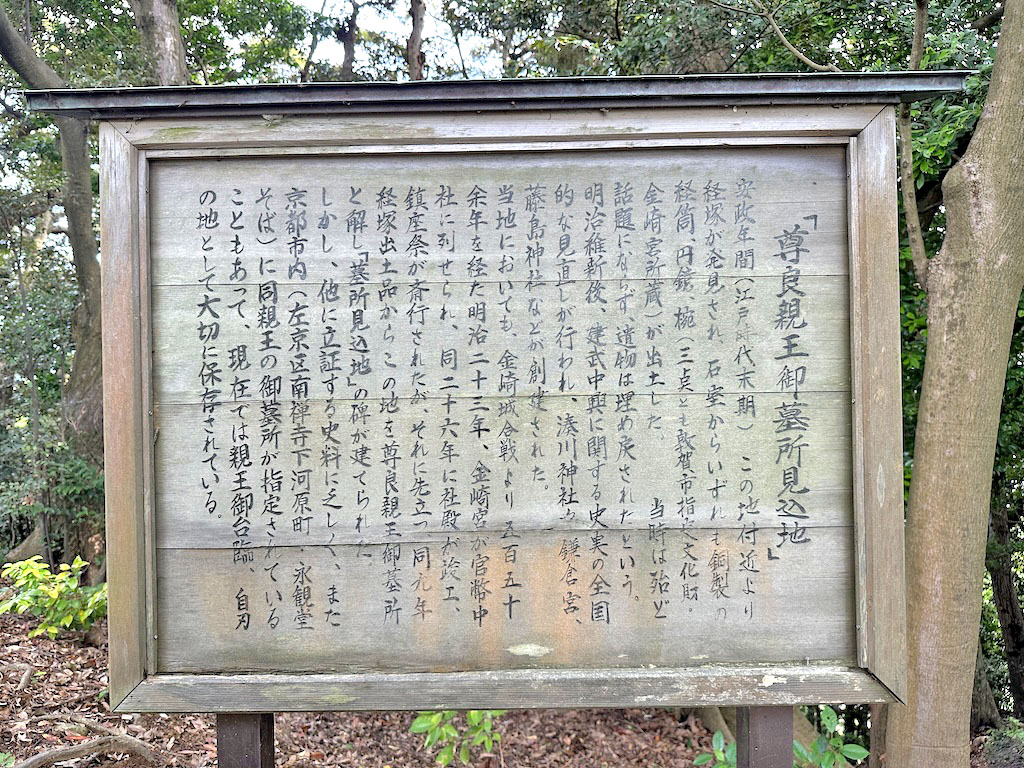 「尊良親王御墓所見込地」
安政年間(江戸時代末期) この地付近より
経塚が発見され、石室からいずれも銅製の
経筒、円鏡、椀(三点とも敦賀市指定文化財。
金崎宮所蔵)が出土した。 当時は殆ど
話題にならず、遺物は埋め戻されたという。
明治維新後、建武中興に関する史実の全国
的な見直しが行われ、湊川神社や鎌倉宮、
藤島神社などが創建された。
当地においても、金崎城合戦より五百五十
余年を経た明治二十三年、金崎宮が官幣中
社に列せられ、同二十六年に社殿が竣工、
鎮座祭が斎行されたが、それに先立つ同九年
経塚出土品からこの地を尊良親王御墓所
と解し「墓所見込地」の碑が建てられた。
しかし、他に立証する史料に乏しく、また
京都市内(左京区南禅寺下河原町・永観堂
そば)に同親王の御墓所が指定されている
こともあって、現在では親王御台臨、自刃
の地として大切に保存されている。